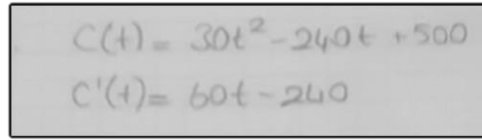 C(t) = 30t² - 240t + 500
C'(t) = 60t - 240